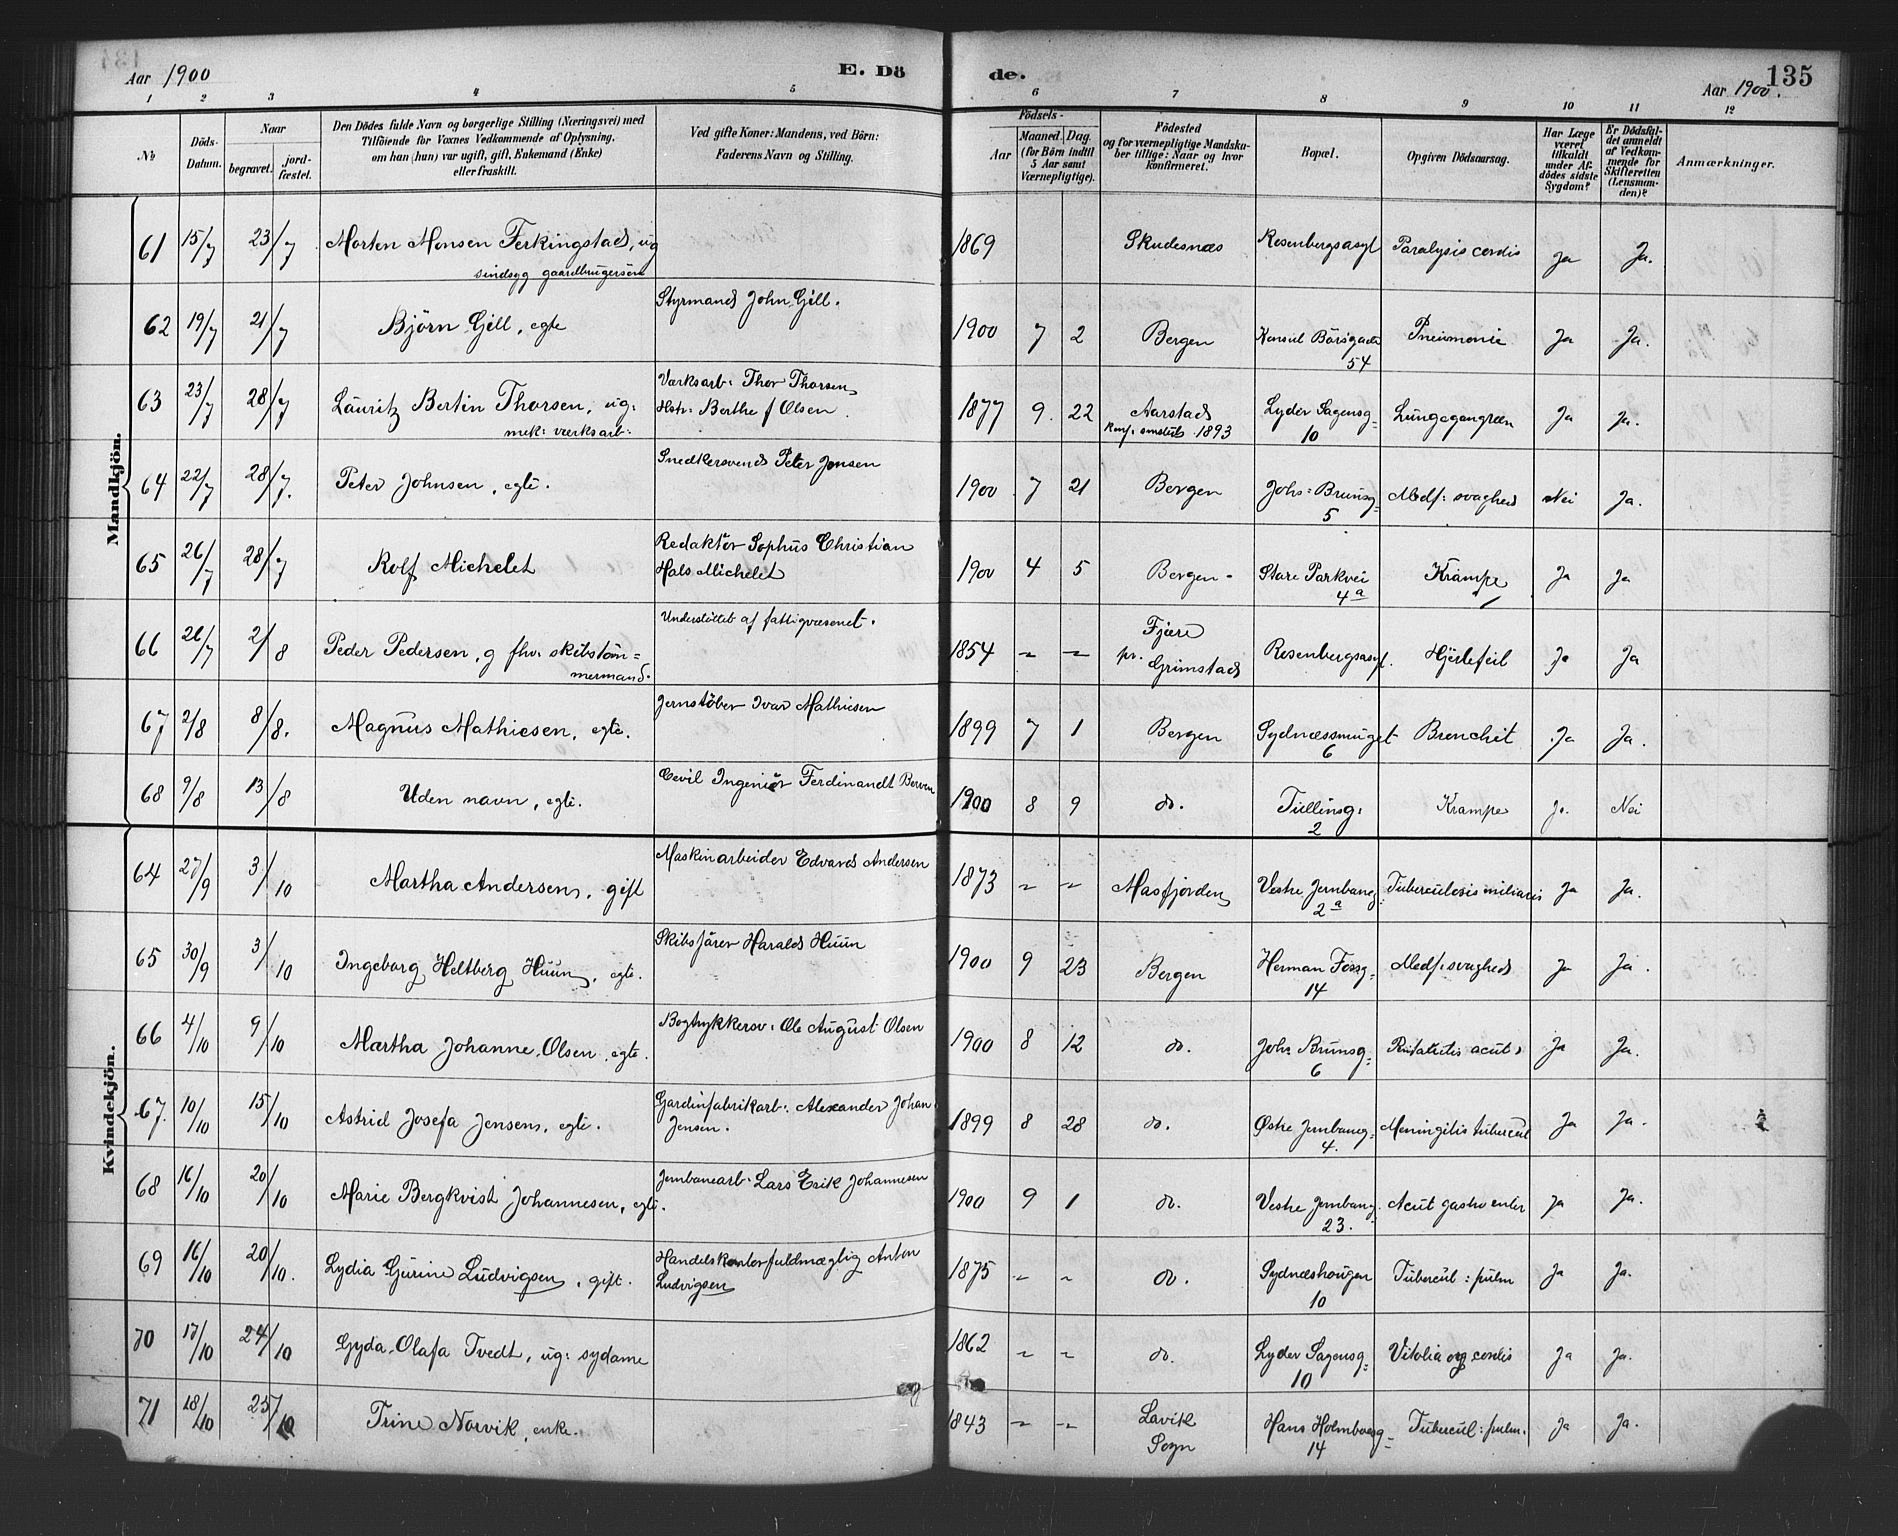 Aar 1900 E. Dö de. 135
Aar 1900.
1 2 3 4 5 6 7 8 9 10 11 12
No
Döds-Datum.
Naar begravet. jordfæstet.
Den Dödes fulde Navn og borgerlige Stilling (Næringsvei) med
Tilföiende for Voxnes Vedkommende af Oplysning,
om han (hun) var ugift, gift, Enkemand (Enke)
eller fraskilt.
Ved gifte Koner: Mandens, ved Börn:
Faderens Navn og Stilling.
Födsels-
Aar Maaned. Dag.
(for Börn indtil 5 Aar samt Værnepligtige).
Födested
og for værnepligtige Mandskaber tillige: Naar og hvor konfirmeret.
Bopæl.
Opgiven Dödsaarsag.
Har Læge været tilkaldt under Afdödes sidste Sygdom?
Er Dödsfaldet anmeldt af Vedkommende for Skifteretten (Lensmanden)?
Anmærkninger.
Mandkjön.
61 15/7 23/7 Morten Monsen Ferkingstad, ug 1869 Skudesnæs Rosenbergsasyl Paralysis cordis Ja Ja.
sindsyg gaardbrugersøn
62 19/7 21/7 Björn Gill, egte Styrmand John Gill. 1900 7 2 Bergen Konsul Börsgade Pneumonie Ja Ja.
54
63 23/7 28/7 Lauritz Bertin Thorsen, ug: Værksarb: Thor Thorsen 1877 9. 22 Aarstad Lyder Sagensg= Lungegangræn Ja Ja.
mek: værksarb: Hstr: Berthe f Olsen. 1893 10
64 22/7 28/7. Peter Johnsen, egte. Snedkersvend Peter Jonsen 1900 7 21 Bergen Johs: Brunsg= Medf: svaghed Nei Ja.
5
65 26/7 28/7 Rolf Michelet Redaktör Sophus Christian 1900 4 5 Bergen Store Parkvei Krampe Ja Ja
Hals Michelet 4a
66 26/7 2/8 Peder Pedersen, g fhv. skibstöm= Understöttet af fattigvæsenet. 1854 Fjære Rosenbergsasyl. Hjertefeil Ja Ja
mermand. pr. Grimstad
67 2/8 8/8. Magnus Mathiesen, egte. Jernstöber Ivar Mathiesen 1899 7 1 Bergen Sydnæssmuget Bronchit Ja Ja.
6
68 9/8 13/8 Uden navn, egte. Civil Ingeniör Ferdinandt 1900 8 9 do. Tullinsg. Krampe Ja Nei
2
Kvindekjön.
64 27/9 3/10 Martha Andersen, gift Maskinarbeider Edvard Andersen 1873 Masfjorden Vestre Jernbaneg: Tuberculosis miliaris Ja Ja.
2a
65 30/9 3/10 Ingeborg Heltberg Huun, egte. Skibsförer Harald Huun 1900 9 23 Bergen Herman Fossg= Medf: svaghed Ja Ja.
14
66 4/10 9/10 Martha Johanne Olsen, egte. Bogtrykkersv: Ole August Olsen 1900 8 12 do. Johs Brunsg= acuta Ja Ja.
6
67. 10/10 15/10 Astrid Josefa Jensen, egte. Gardinfabrikarb: Alexander Johan 1899 8 28 do. Østre Jernbaneg= Meningitis tubercul Ja Ja.
Jensen. 4.
68 16/10 20/10 Marie Bergkvist Johannesen, egte. Jernbanearb. Lars Erik Johannesen 1900 9 1 do. Vestre Jernbaneg. Acut gastro enter Ja Ja.
23.
69 16/10 20/10. Lydia Gurine Ludvigsen, gift. Handelskontorfuldmægtig Anton 1875 do. Sydnæshougen Tubercul: pulm Ja Ja.
Ludvigsen 10
70 17/10 24/10 Gyda Olafa Tvedt, ug: sydame 1862 do. Lyder Sagensg= Vitolia org cordis Ja Ja.
10
71 18/10 25/10 Trine Norvik, enke. 1843 Lavik Hans Holmboesg= Tubercul: pulm. Ja Ja.
Sogn 14